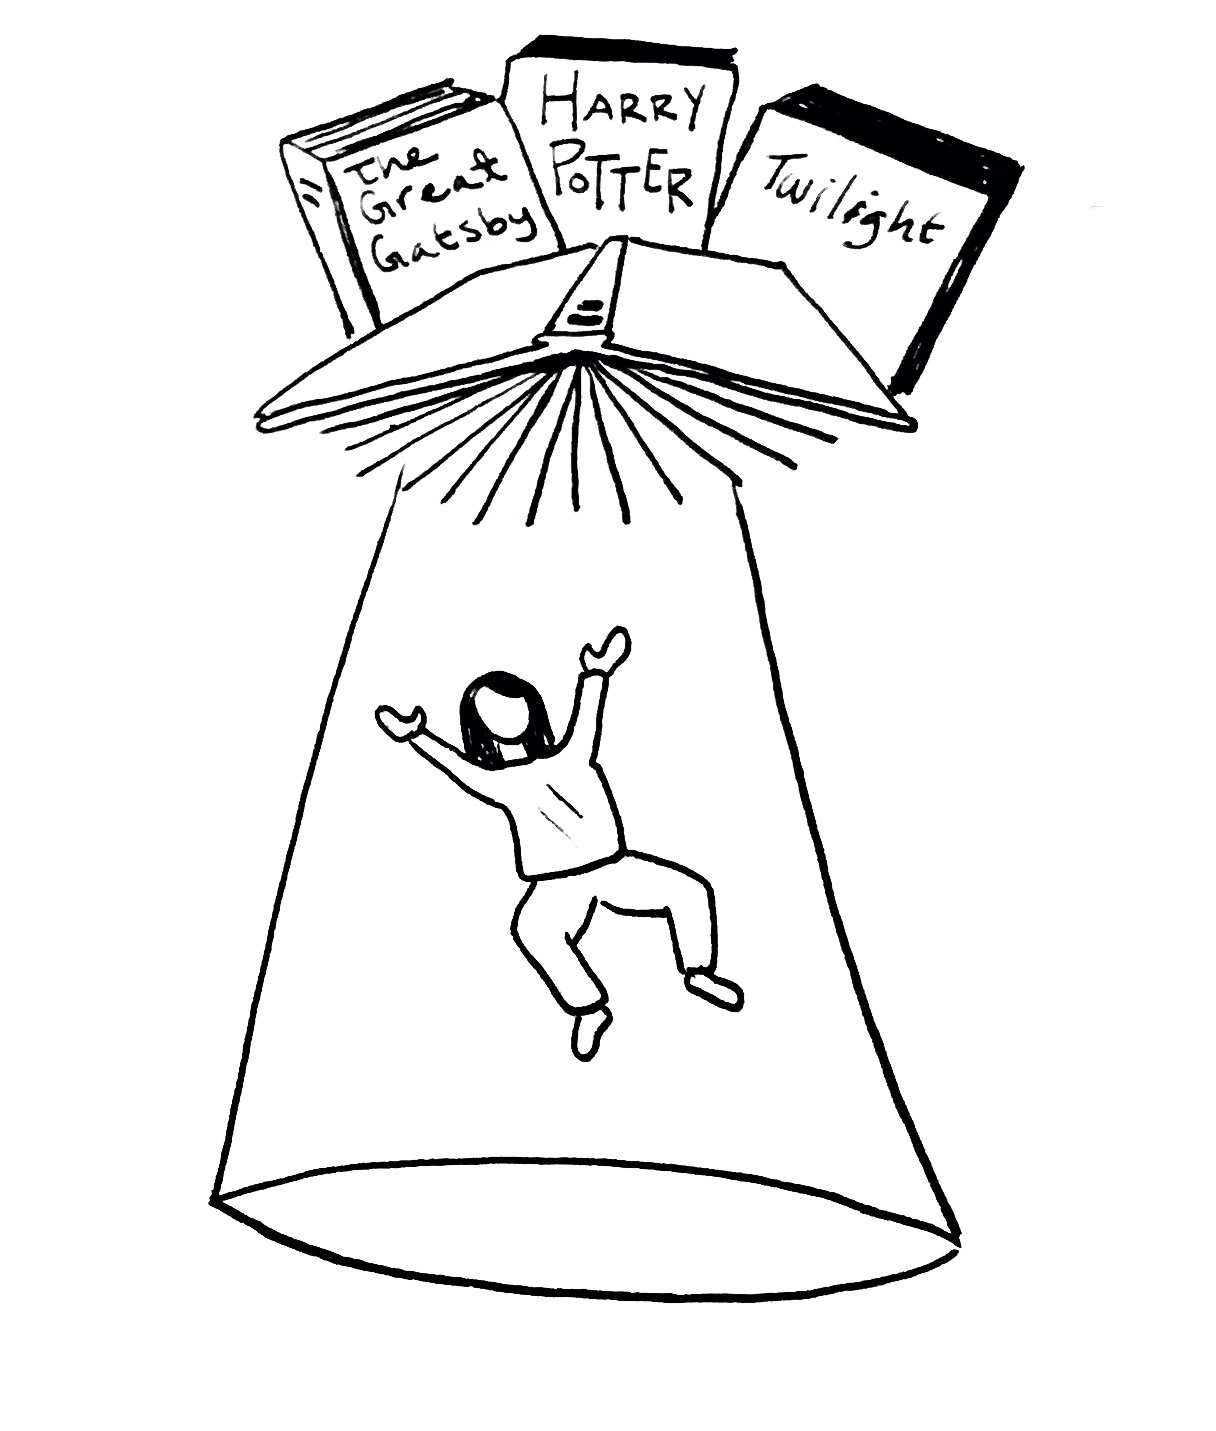 The
Great
Gatsby
HARRY
POTTER
Twilight